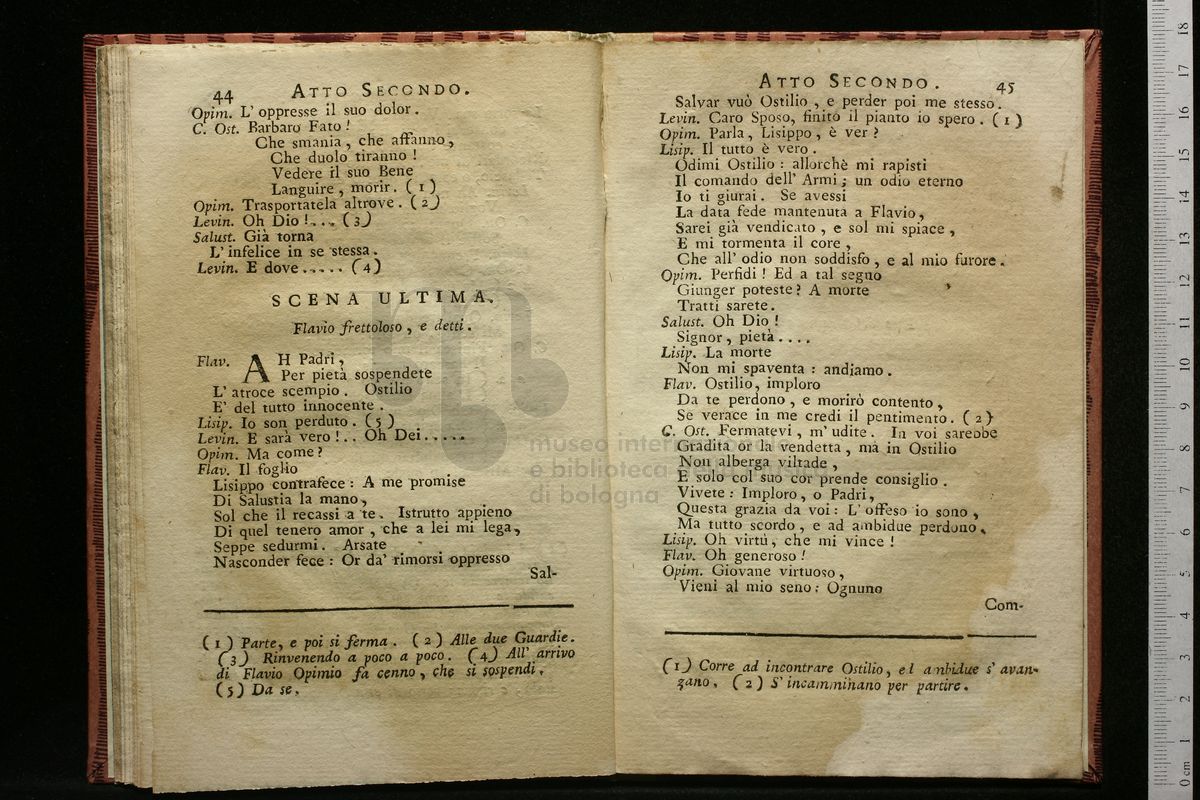 44
ATTO SECONDO.
Opim. L' oppresse il suo dolor.
C. Ost. Barbaro Fato!
Che smania, che affanno,
Che duolo tiranno!
Vedere il suo Bene
Languire, morir. (1)
Opim. Trasportatela altrove. (2)
Levin. Oh Dio!... (3)
Salust. Già torna
L' infelice in se stessa.
Levin. E dove..... (4)
SCENA ULTIMA.
Flavio frettoloso, e detti.
Flav. AH Padri,
Per pietà sospendete
L' atroce scempio. Ostilio
E' del tutto innocente.
Lisip. Io son perduto. (5)
Levin. E sarà vero!.. Oh Dei.....
Opim. Ma come?
Flav. Il foglio
Lisippo contrafece: A me promise
Di Salustia la mano,
Sol che il recassi a te. Istrutto appieno
Di quel tenero amor, che a lei mi lega,
Seppe sedurmi. Arsate
Nasconder fece: Or da' rimorsi oppresso
Sal-
(1) Parte, e poi si ferma. (2) Alle due Guardie.
(3) Rinvenendo a poco a poco. (4) All' arrivo
di Flavio Opimio fa cenno, che si sospendi.
(5) Da se.
ATTO SECONDO.
45
Salvar vuò Ostilio, e perder poi me stesso.
Levin. Caro Sposo, finito il pianto io spero. (1)
Opim. Parla, Lisippo, è ver?
Lisip. Il tutto è vero.
Odimi Ostilio: allorchè mi rapisti
Il comando dell' Armi; un odio eterno
Io ti giurai. Se avessi
La data fede mantenuta a Flavio,
Sarei già vendicato, e sol mi spiace,
E mi tormenta il core,
Che all' odio non soddisfo, e al mio furore.
Opim. Perfidi! Ed a tal segno
Giunger poteste? A morte
Tratti sarete.
Salust. Oh Dio!
Signor, pietà....
Lisip. La morte
Non mi spaventa: andiamo.
Flav. Ostilio, imploro
Da te perdono, e morirò contento,
Se verace in me credi il pentimento. (2)
C. Ost. Fermatevi, m' udite. In voi sarebbe
Gradita or la vendetta, ma in Ostilio
Non alberga viltade,
E solo col suo cor prende consiglio.
Vivete: Imploro, o Padri,
Questa grazia da voi: L' offeso io sono,
Ma tutto scordo, e ad ambidue perdono.
Lisip. Oh virtù, che mi vince!
Flav. Oh generoso!
Opim. Giovane virtuoso,
Vieni al mio seno: Ognuno
Com-
(1) Corre ad incontrare Ostilio, ed ambidue s' avan-
zano. (2) S' incamminano per partire.
museo internazionale
e biblioteca della musica
di bologna
0 cm 1 2 3 4 5 6 7 8 9 10 11 12 13 14 15 16 17 18